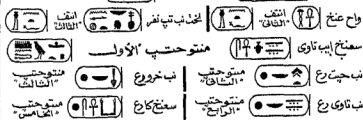 واح عنخ انتف "الثانى" لخذ نب تپ نفر انتف "الثالث"
سعنخ إيب تاوى منتوحتب "الأول"
نب حپت رع منتوحتب "الثانى" نب خرو رع منتوحتب "الثالث"
نب تاوى رع منتوحتب "الرابع" سعنخ كا رع منتوحتب "الخامس"